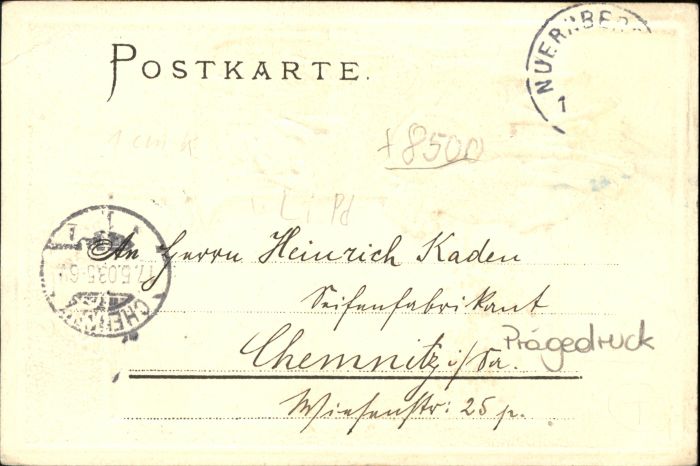 POSTKARTE.
NUERNBERG
1
1 cm K
+8500
Li Pd
An Herrn Heinrich Kaden
17.5.03.5-6
CHEMNITZ
Seifenfabrikant
Prägedruck
Chemnitz i/Sa.
Wiesenstr: 25 p.